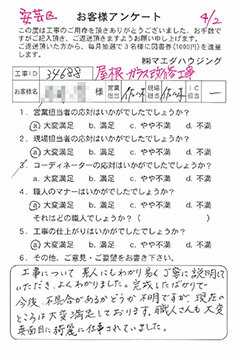 安芸区
お客様アンケート
4/2
この度は工事のご用命を頂きありがとうございました。お手数で
すがご記入頂き、ご返送頂きますようお願い申し上げます。
ご返送頂いた方から、毎月抽選で3名様に図書券(1000円)を進呈
します。
㈱マエダハウジング
工事ID 34688 屋根・ガラス改修工事
お客様名 様 営業担当 現場担当 IC担当
1. 営業担当者の応対はいかがでしたでしょうか?
a. 大変満足 b. 満足 c. やや不満 d. 不満
2. 現場担当者の応対はいかがでしたでしょうか?
a. 大変満足 b. 満足 c. やや不満 d. 不満
3. コーディネーターの応対はいかがでしたでしょうか?
a. 大変満足 b. 満足 c. やや不満 d. 不満
4. 職人のマナーはいかがでしたでしょうか?
a. 大変満足 b. 満足 c. やや不満 d. 不満
それはどの職人でしょうか?( )
5. 工事の仕上がりはいかがでしたでしょうか?
a. 大変満足 b. 満足 c. やや不満 d. 不満
6. その他、ご意見・ご要望をお書き下さい。
工事について 素人にもわかり易く丁寧に説明して
いただき、よくわかりました。完成したばかりで
今後、不具合があるかどうか不明ですが、現在の
ところは大変満足しております。職人さんも大変
真面目に綺麗に仕事されていました。